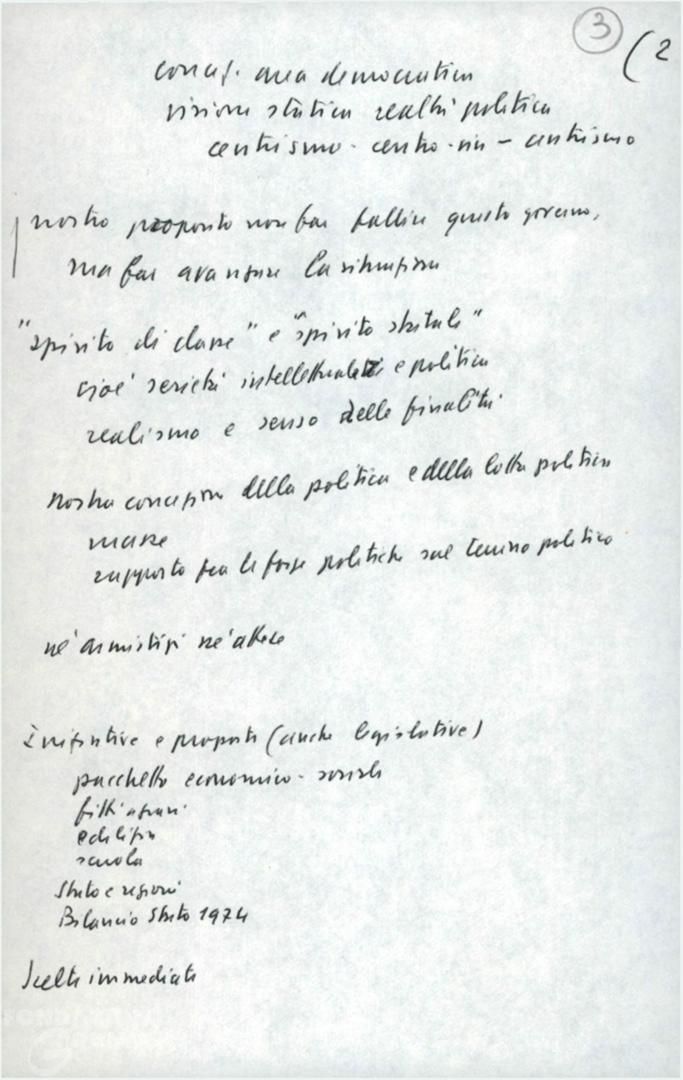 3 (2
concez. area democratica
visione statica realtà politica
centrismo - centro-sin - centrismo
nostro proposito non far fallire questo governo,
ma far avanzare la situazione
"spirito di classe" e "spirito statale"
cioè serietà intellettuale e politica
realismo e senso delle finalità
nostra concezione della politica e della lotta politica
masse
rapporto fra le forze politiche sul terreno politico
nè armistizi nè attese
Iniziative e proposte (anche legislative)
pacchetto economico-sociale
fitti agrari
edilizia
scuola
Stato e regioni
Bilancio Stato 1974
Scelte immediate